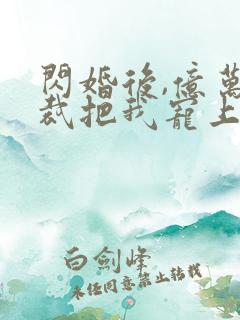 閃婚後,億萬
裁把我寵上
白劍峰
未經同意禁止轉載